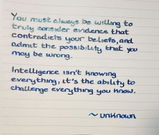 You must always be willing to
truly consider evidence that
contradicts your beliefs, and
admit the possibility that you
may be wrong.
Intelligence isn't knowing
everything, it's the ability to
challenge everything you know.
~ unknown